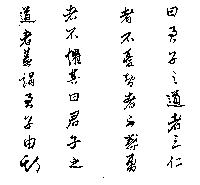 曰君子之道者三仁
者不憂智者不惑勇
者不懼其曰君子之
道者蓋謂君子由